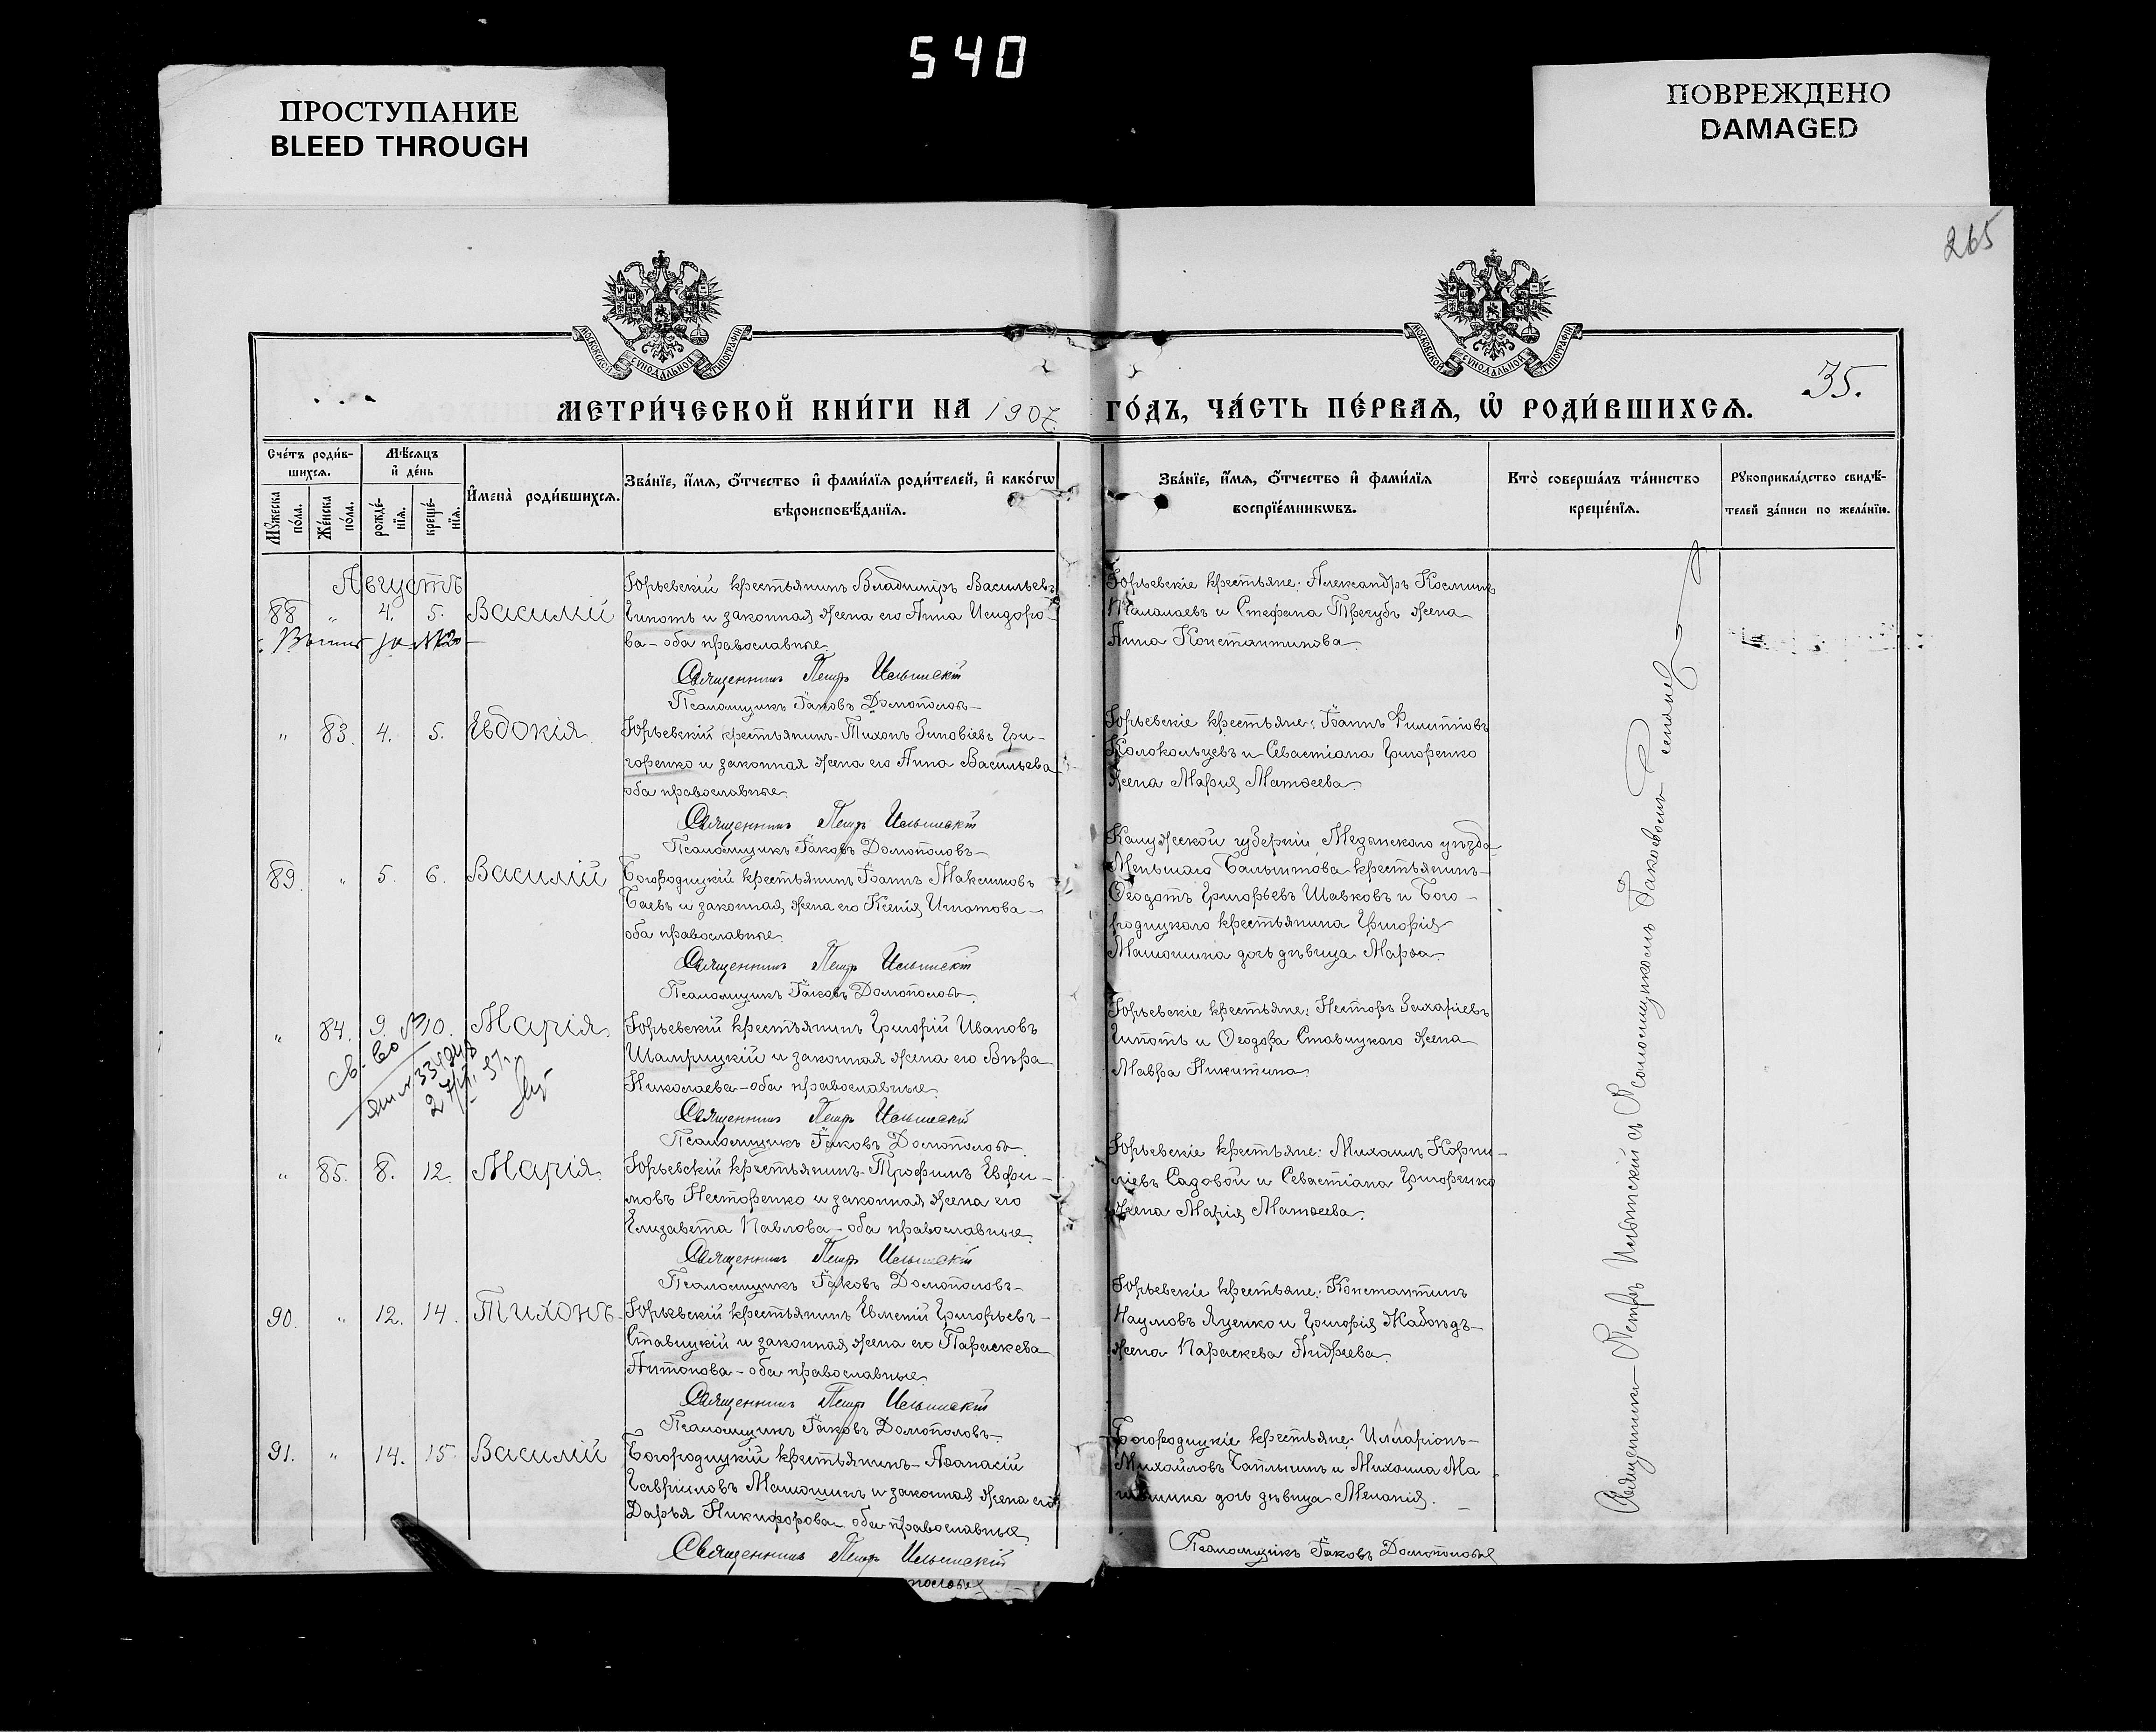 540
ПРОСТУПАНИЕ
BLEED THROUGH
ПОВРЕЖДЕНО
DAMAGED
265
МОСКОВСКОЙ СУНОДАЛЬНОЙ ТИПОГРАФІИ
МОСКОВСКОЙ СУНОДАЛЬНОЙ ТИПОГРАФІИ
35.
МЕТРИ́ЧЕСКОЙ КНИ́ГИ НА 1907 ГО́ДЪ, ЧА́СТЬ ПЕ́РВАѦ, Ѡ҆ РОДИ́ВШИХСѦ.
Сче́тъ роди́в-
шихсѧ.
Мѣ́сѧцъ
и҆ де́нь
Мꙋжеска
по́ла.
Же́нска
по́ла.
рожде́-
нїѧ.
креще́-
нїѧ.
И҆мена̀ роди́вшихсѧ.
Зва́нїе, и҆́мѧ, ѻ҆́тчество и҆ фами́лїѧ роди́телей, и҆ како́гѡ
вѣроисповѣ́данїѧ.
Зва́нїе, и҆́мѧ, ѻ҆́тчество и҆ фами́лїѧ
воспрїе́мникѡвъ.
Кто̀ соверша́лъ та́инство
креще́нїѧ.
Рꙋкоприкла́дство свидѣ́-
телей за́писи по жела́нїю.
Августъ
88 " 4. 5. Василій
Юрьевскій крестьянинъ Владиміръ Васильевъ
Гипотъ и законная жена его Анна Исидоро-
ва - оба православные.
Священникъ Петръ Ильинскій
Псаломщикъ Іаковъ Домополовъ
Юрьевскіе крестьяне: Александръ Косминъ
Палалаевъ и Стефана Трегубъ жена
Анна Константинова.
" 83. 4. 5. Евдокія
Юрьевскій крестьянинъ - Тихонъ Зиновіевъ Гри-
горенко и законная жена его Анна Васильева
оба православные.
Священникъ Петръ Ильинскій
Псаломщикъ Іаковъ Домополовъ
Юрьевскіе крестьяне: Іоаннъ Филипповъ
Колокольцевъ и Севастіана Григоренко
жена Марія Матѳеева.
89. " 5. 6. Василій
Богородицкій крестьянинъ Іоаннъ Максимовъ
Баевъ и законная жена его Ксенія Игнатова -
оба православные.
Священникъ Петръ Ильинскій
Псаломщикъ Іаковъ Домополовъ
Калужской губерніи, Медынскаго уѣзда
Меньшаго крестьянинъ
Ѳеодотъ Григорьевъ Шавковъ и Бого-
родицкаго крестьянина Григорія
Матюшина дочь дѣвица Марѳа.
" 84. 9. 10. Марія
Юрьевскій крестьянинъ Григорій Ивановъ
Шамрицкій и законная жена его Вѣра
Николаева - оба православные.
Священникъ Петръ Ильинскій
Псаломщикъ Іаковъ Домополовъ
Юрьевскіе крестьяне: Несторъ Захаріевъ
Гипотъ и Ѳеодора Ставицкаго жена
Мавра Никитина.
" 85. 8. 12. Марія
Юрьевскій крестьянинъ - Трофимъ Евфи-
мовъ Несторенко и законная жена его
Елизавета Павлова - оба православные.
Священникъ Петръ Ильинскій
Псаломщикъ Іаковъ Домополовъ
Юрьевскіе крестьяне: Михаилъ Корни-
ліевъ Садовой и Севастіана Григоренко
жена Марія Матѳеева.
90. " 12. 14. Тихонъ
Юрьевскій крестьянинъ Евменій Григорьевъ -
Ставицкій и законная жена его Параскева
Антонова - оба православные.
Священникъ Петръ Ильинскій
Псаломщикъ Іаковъ Домополовъ
Юрьевскіе крестьяне: Константинъ
Наумовъ Яценко и Григорія Жабоѣдъ
жена Параскева Андреева.
91. " 14. 15. Василій
Богородицкій крестьянинъ - Аѳанасій
Гавриловъ Матюшинъ и законная жена его
Дарья Никифорова - оба православные
Священникъ Петръ Ильинскій
Богородицкіе крестьяне: Илларіонъ
Михайловъ Чаплыгинъ и Михаила Ма
тюшина дочь дѣвица Меланія.
Псаломщикъ Іаковъ Домополовъ
Священникъ Петръ Ильинскій съ Псаломщикомъ Іаковомъ